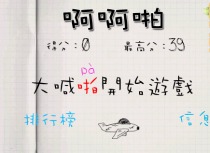 啊啊啪
得分：0 最高分：39
pò
大喊啪開始遊戲
排行榜 信息